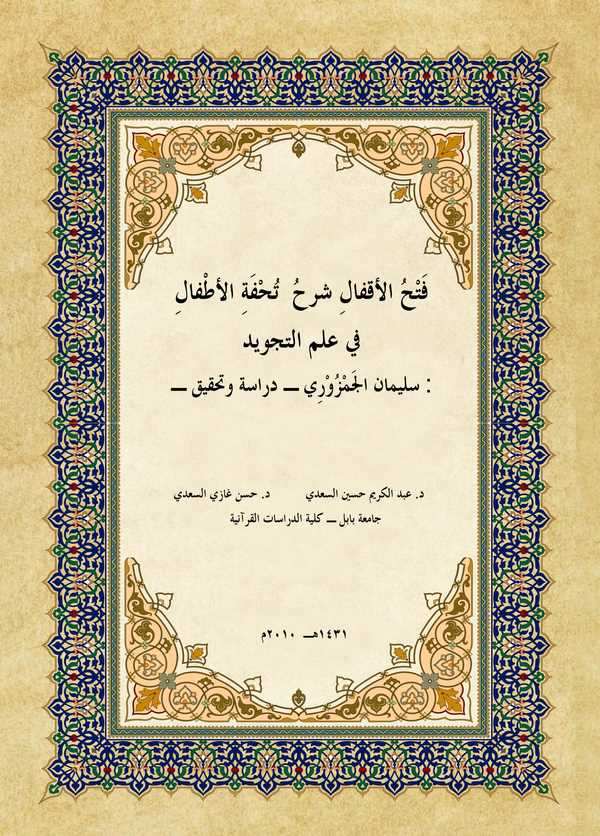 فَتْحُ الأقفالِ شرحُ تُحْفَةِ الأطْفالِ
في علم التجويد
: سليمان الجَمْزُوْرِي ــ دراسة وتحقيق ــ
د. عبد الكريم حسين السعدي د. حسن غازي السعدي
جامعة بابل ــ كلية الدراسات القرآنية
١٤٣١هــ ٢٠١٠م